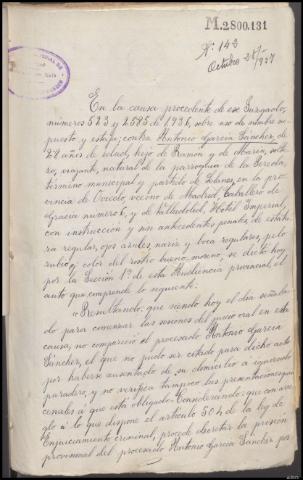 M.2800.131
Nº 143
Octubre 28/937
En la causa procedente de ese Juzgado,
números 523 y 2585 de 1936, sobre uso de nombre su-
puesto y estafa; contra Antonio García Sánchez, de
28 años de edad, hijo de Ramón y de María, solte-
ro, viajante, natural de la parroquia de la
término municipal y partido de en la pro-
vincia de Oviedo, vecino de Madrid, Caballero de
Gracia número 6, y de Valladolid, Hotel Imperial,
con instrucción y sin antecedentes penales, de estatu-
ra regular, ojos azules, nariz y boca regulares, pelo
rubio y color del rostro bueno, moreno, se dictó hoy
por la Sección 1ª de esta Audiencia provincial, el
auto que comprende lo siguiente:
"Resultando: que siendo hoy el día señala-
do para comenzar las sesiones del juicio oral en esta
causa, no compareció el procesado Antonio García
Sánchez, el que no pudo ser citado para dicho acto
por haberse ausentado de su domicilio a ignorado
paradero, y no verifica tampoco las presentaciones quin-
cenales a que está obligado. Considerando: que con arre-
glo a lo que dispone el artículo 504 de la ley de
Enjuiciamiento criminal, procede decretar la prisión
provisional del procesado Antonio García Sánchez por